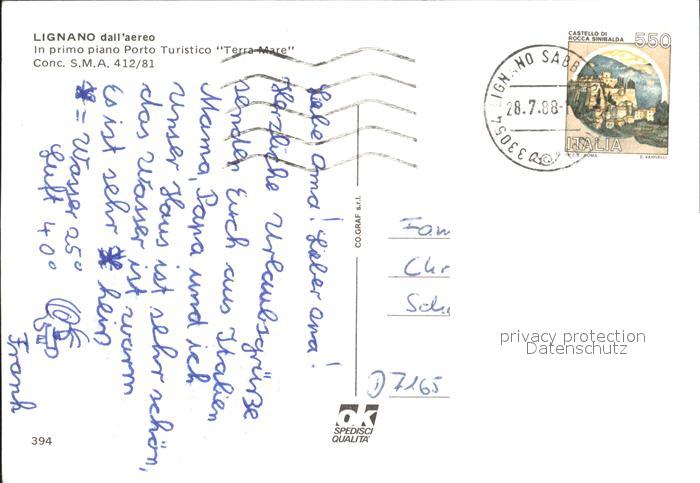 LIGNANO dall'aereo
In primo piano Porto Turistico "Terra Mare"
Conc. S.M.A. 412/81
Liebe Oma! Lieber Opa!
Herzliche Urlaubsgrüße
senden Euch aus Italien
Mama, Papa und ich
Unser Haus ist sehr schön,
das Wasser ist warm
Es ist sehr * heiß
* = Wasser 25°
Luft 40°
Frank
CO.GRAF s.r.l.
ok
SPEDISCI
QUALITA'
394
CASTELLO DI
ROCCA SINIBALDA
550
ITALIA
33054 LIGNANO SABB
28.7.88
Fam
Chr
Sch
D 7165
privacy protection
Datenschutz